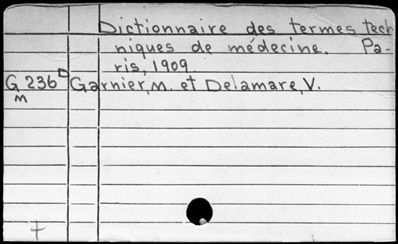 Dictionnaire des termes tech
niques de médecine. Pa-
ris, 1909
G 236 D Garnier, M. et Delamare, V.
M